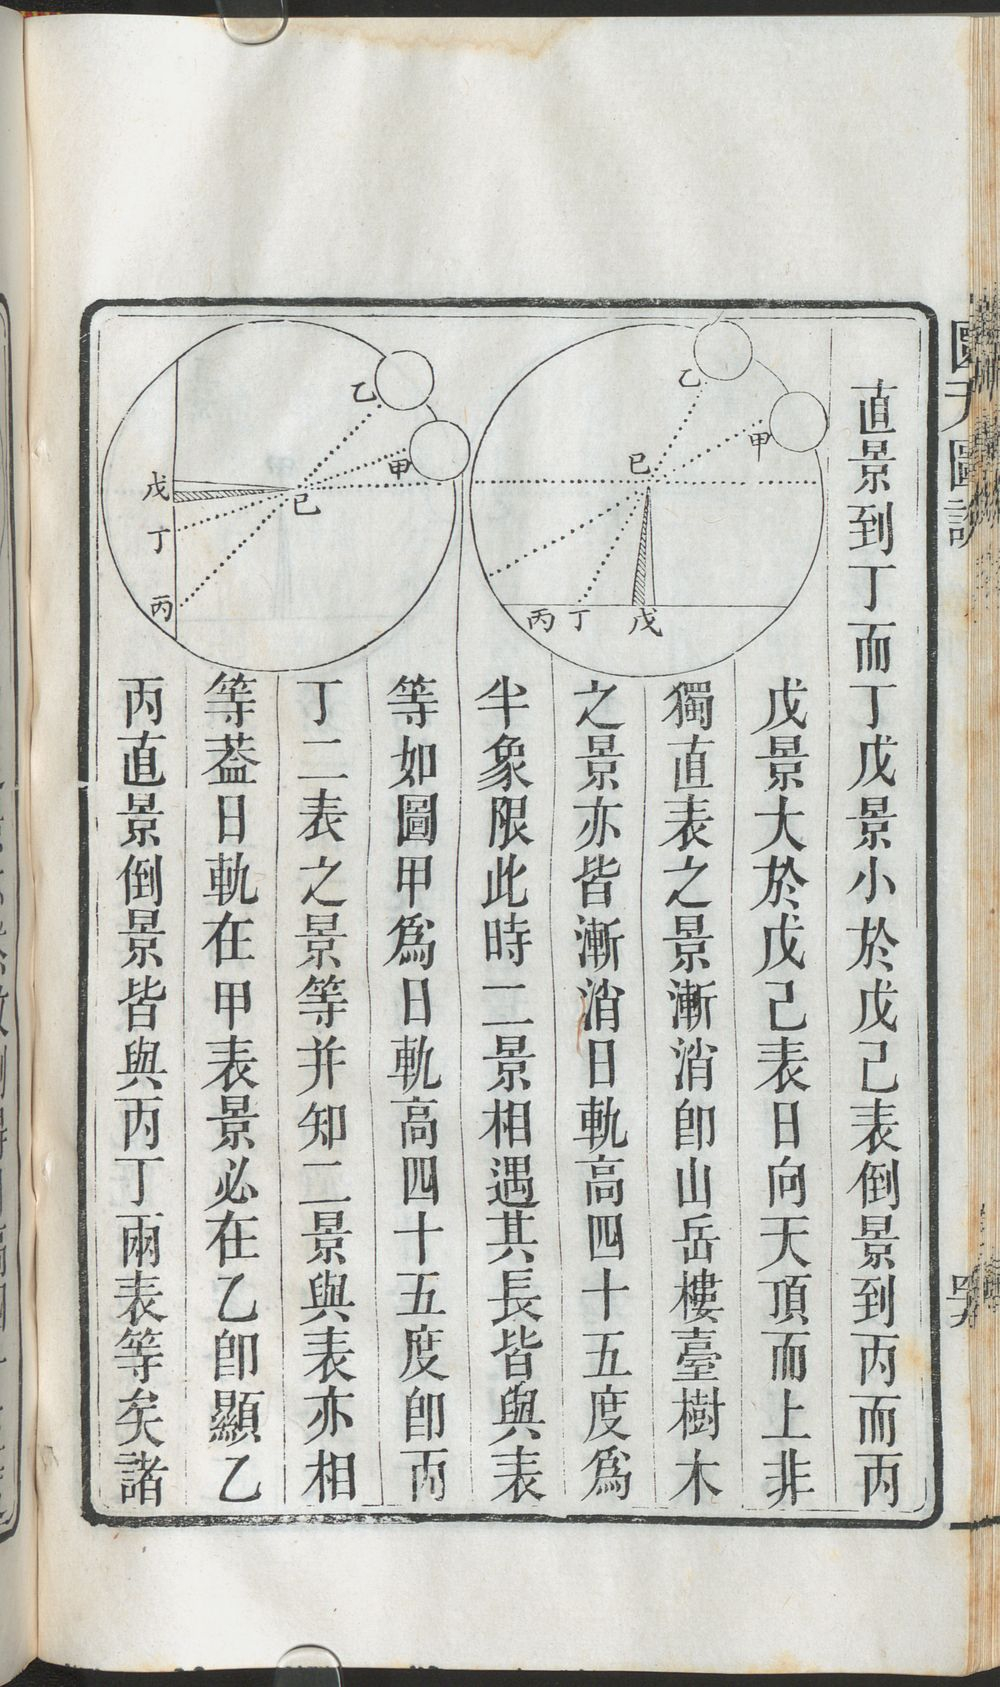 直景到丁而丁戊景小於戊己表倒景到丙而丙
戊景大於戊己表日向天頂而上非
獨直表之景漸消卽山岳樓臺樹木
之景亦皆漸消日軌高四十五度爲
半象限此時二景相遇其長皆與表
等如圖甲爲日軌高四十五度卽丙
丁二表之景等并知二景與表亦相
等葢日軌在甲表景必在乙卽顯乙
丙直景倒景皆與丙丁兩表等矣諸
乙
甲
已
丙
丁
戊
乙
甲
已
戊
丁
丙